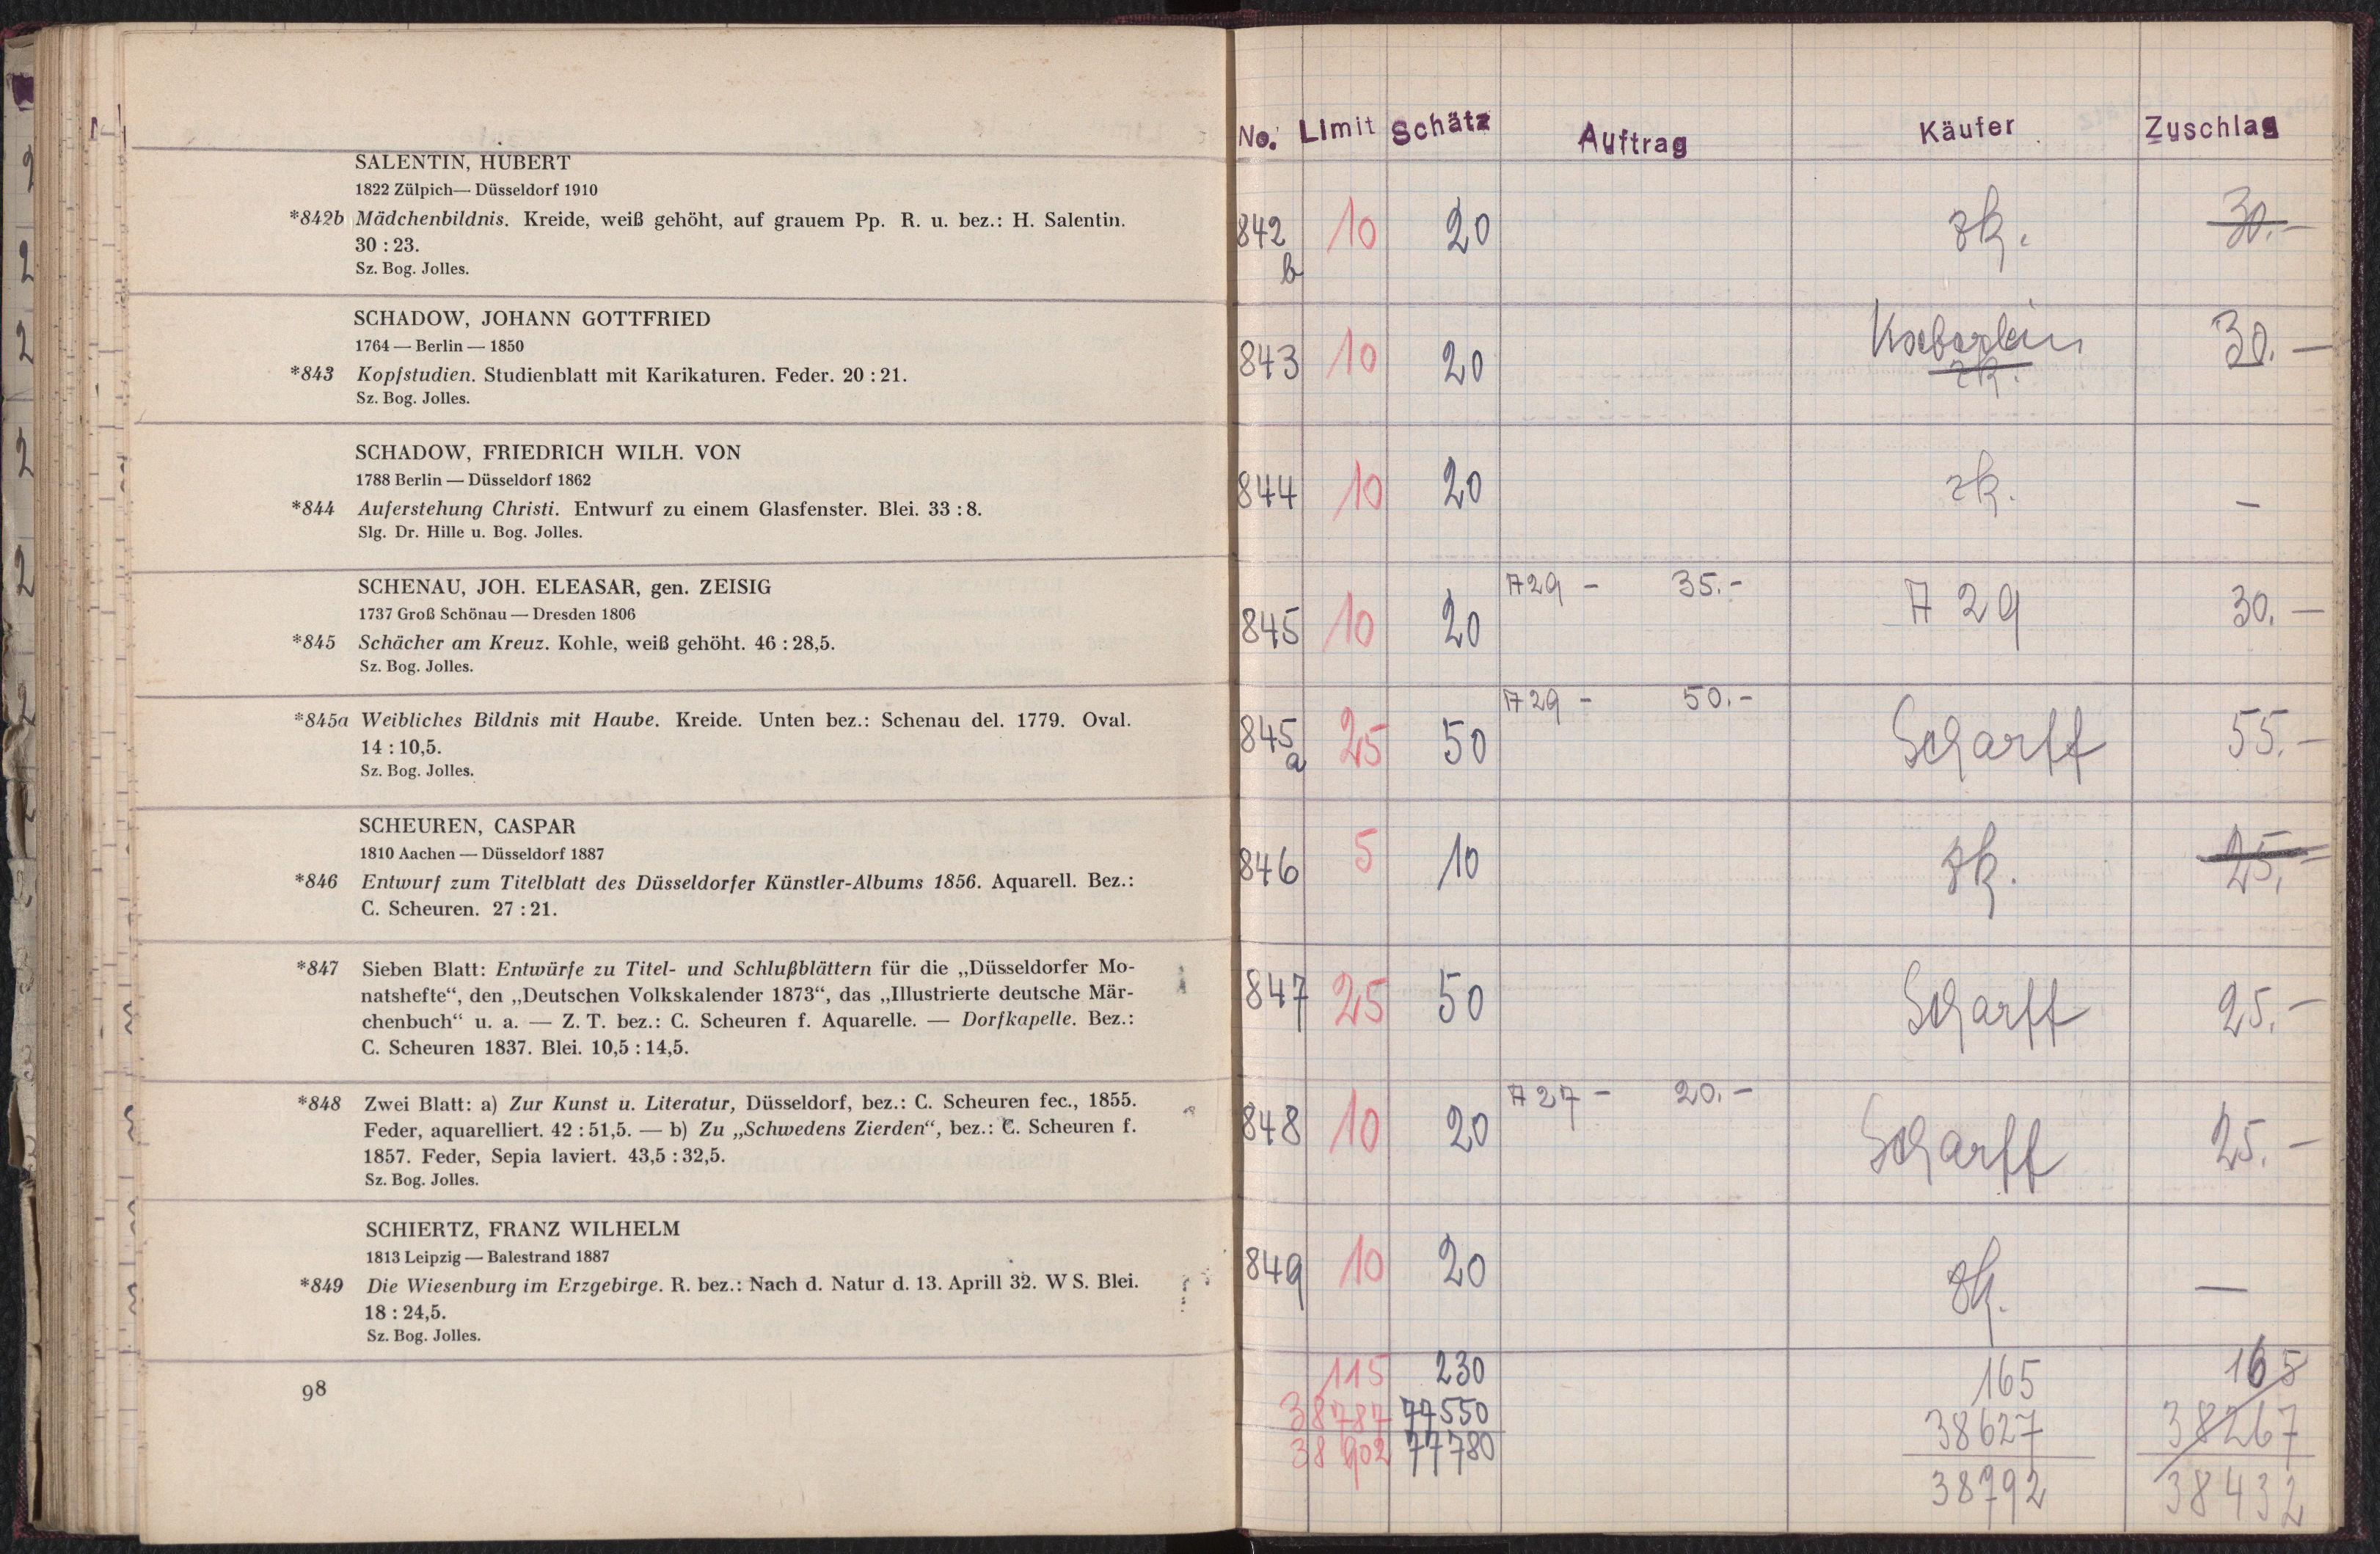 SALENTIN, HUBERT
1822 Zülpich— Düsseldorf 1910
*842b Mädchenbildnis. Kreide, weiß gehöht, auf grauem Pp. R. u. bez.: H. Salentin.
30 : 23.
Sz. Bog. Jolles.
SCHADOW, JOHANN GOTTFRIED
1764 — Berlin — 1850
*843 Kopfstudien. Studienblatt mit Karikaturen. Feder. 20 : 21.
Sz. Bog. Jolles.
SCHADOW, FRIEDRICH WILH. VON
1788 Berlin — Düsseldorf 1862
*844 Auferstehung Christi. Entwurf zu einem Glasfenster. Blei. 33 : 8.
Slg. Dr. Hille u. Bog. Jolles.
SCHENAU, JOH. ELEASAR, gen. ZEISIG
1737 Groß Schönau — Dresden 1806
*845 Schächer am Kreuz. Kohle, weiß gehöht. 46 : 28,5.
Sz. Bog. Jolles.
*845a Weibliches Bildnis mit Haube. Kreide. Unten bez.: Schenau del. 1779. Oval.
14 : 10,5.
Sz. Bog. Jolles.
SCHEUREN, CASPAR
1810 Aachen — Düsseldorf 1887
*846 Entwurf zum Titelblatt des Düsseldorfer Künstler-Albums 1856. Aquarell. Bez.:
C. Scheuren. 27 : 21.
*847 Sieben Blatt: Entwürfe zu Titel- und Schlußblättern für die „Düsseldorfer Mo-
natshefte“, den „Deutschen Volkskalender 1873“, das „Illustrierte deutsche Mär-
chenbuch“ u. a. — Z. T. bez.: C. Scheuren f. Aquarelle. — Dorfkapelle. Bez.:
C. Scheuren 1837. Blei. 10,5 : 14,5.
*848 Zwei Blatt: a) Zur Kunst u. Literatur, Düsseldorf, bez.: C. Scheuren fec., 1855.
Feder, aquarelliert. 42 : 51,5. — b) Zu „Schwedens Zierden“, bez.: C. Scheuren f.
1857. Feder, Sepia laviert. 43,5 : 32,5.
Sz. Bog. Jolles.
SCHIERTZ, FRANZ WILHELM
1813 Leipzig — Balestrand 1887
*849 Die Wiesenburg im Erzgebirge. R. bez.: Nach d. Natur d. 13. Aprill 32. W S. Blei.
18 : 24,5.
Sz. Bog. Jolles.
98
No. Limit Schätz Auftrag Käufer Zuschlag
842b 10 20 zk. 30.-
843 10 20 30.-
zk.
844 10 20 zk. -
845 10 20 A29 - 35.- A 29 30.-
845a 25 50 A29 - 50.- Scharff 55.-
846 5 10 zk. 25.-
847 25 50 Scharff 25.-
848 10 20 A27 - 20.- Scharff 25.-
849 10 20 zk. —
115 230 165 165
38787 77550 38627 38267
38902 77780 38792 38432